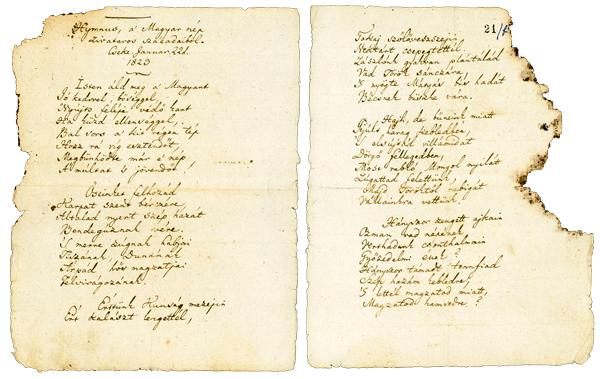 Hymnus, a' Magyar nép
zivataros századaiból.
Cseke. Januar. 22d.
1823
Isten áldd meg a' Magyart
Jó kedvvel, bőséggel,
Nyújts feléje védő kart
Ha küzd ellenséggel;
Bal sors a' kit régen tép
Hozz rá víg esztendőt,
Megbűnhődte már e' nép
A' múltat 's jövendőt!
Őseinket felhozád
Karpat szent bérczére,
Általad nyert szép hazát
Bendegúznak vére.
'S merre zúgnak habjai
Tiszának, Dunának
Árpád hős magzatjai
Felvirágozának.
Értünk Kunság mezején
Ért kalászt lengettél,
21/
Tokaj szőlővesszejin
Nektárt csepegtettél.
Zászlónk gyakran plántálád
Vad Török sánczára,
'S nyögte Mátyás bús hadát
Bécsnek büszke vára.
Hajh, de bűneink miatt
Gyúlt harag kebledben,
'S elsújtád villámidat
Dörgő fellegedben,
Most rabló Mongol nyilát
Zúgattad felettünk,
Majd Töröktől rabigát
Vállainkra vettünk.
Hányszor zengett ajkain
Ozman vad népének,
Vert hadunk csonthalmain
Győzedelmi ének!
Hányszor támadt tennfiad
Szép hazám kebledre,
'S lettél magzatod miatt,
Magzatod hamvedre?